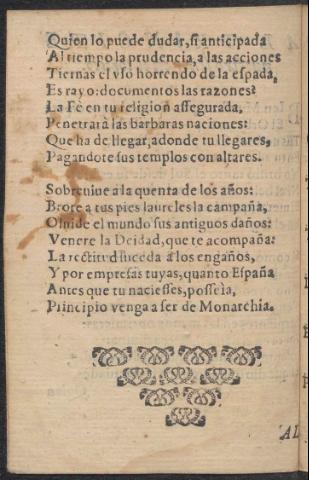 Quien lo puede dudar, si anticipada
Al tiempo la prudencia, a las acciones
Tiernas el vso horrendo de la espada,
Es rayo: documentos las razones?
La Fè en tu religion assegurada,
Penetrarà las barbaras naciones:
Que ha de llegar, adonde tu llegares,
Pagandote sus templos con altares.
Sobreuiue a la quenta de los años:
Brote a tus pies laureles la campaña,
Oluide el mundo sus antiguos daños:
Venere la Deidad, que te acompaña:
La rectitud suceda a los engaños,
Y por empresas tuyas, quanto España
Antes que tu naciesses, posseìa,
Principio venga a ser de Monarchia.
AL